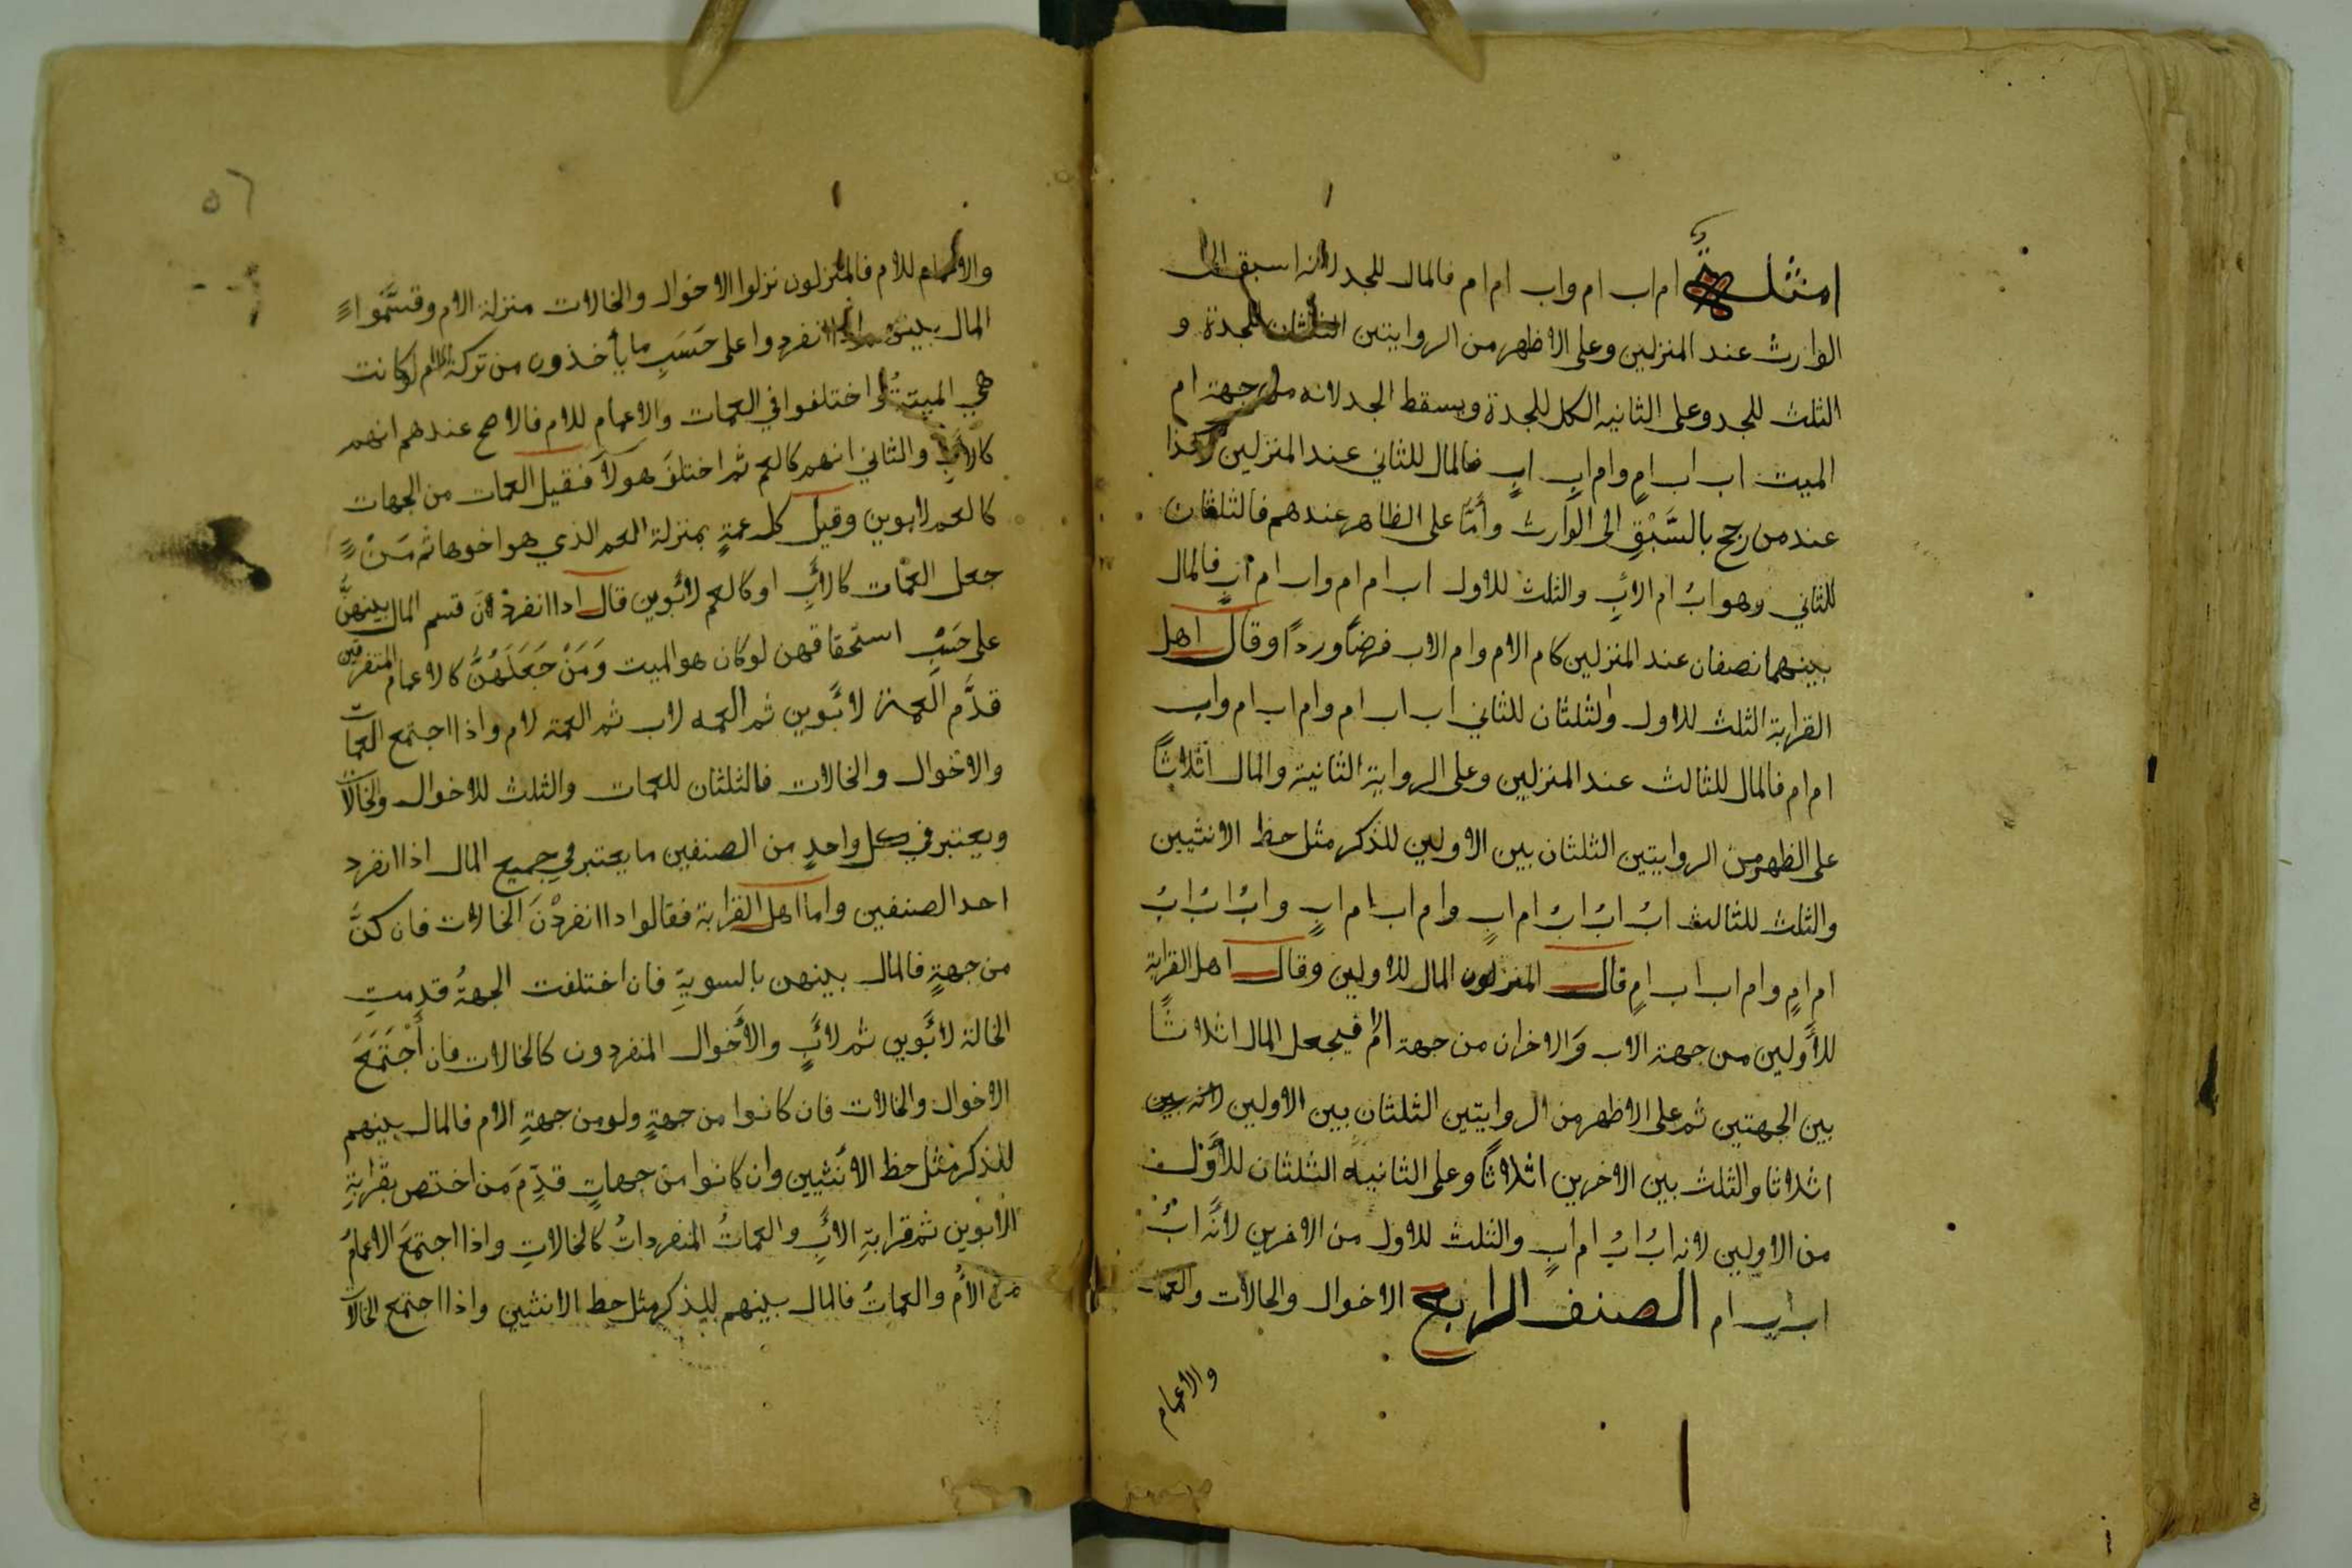 امثلة ام اب ام واب ام ام فالمال للجد لانه اسبق الى
الوارث عند المنزلين وعلى الاظهر من الروايتين الثلثان للجدة و
الثلث للجد وعلى الثانيه الكل للجدة ويسقط الجد لانه من جهة ام
الميت اب اب امٍ وام ابِ ابٍ فالمال للثاني عند المنزلين وكذا
عند من رجح بالسَّبْقِ الى الوارث وأمَّا على الظاهر عندهم فالثلثان
للثاني وهو ابُ ام الأبِ والثلث للاول اب ام ام واب ام ابٍ فالمال
بينهما نصفان عند المنزلين كام الام وام الاب فرضًا وردًا وقال اهل
القرابة الثلث للاول ولثلثان للثاني اب اب ام وام اب ام واب
ام ام فالمال للثالث عند المنزلين وعلى الرواية الثانية والمال اثلاثًا
على الظهر من الروايتين الثلثان بين الاولين للذكر مثل حظ الانثيين
والثلث للثالث ابُ ابُ ابُ ام ابٍ وام اب ام ابٍ وابُ ابُ ابُ
ام امٍ وام اب اب امٍ قال المنزلون المال للاولين وقال اهل القرابة
للأولين من جهة الاب وَالاخران من جهة الام فيجعل المال اثلاثًا
بين الجهتين ثم على الاظهر من الروايتين الثلثان بين الاولين
اثلاثا والثلث بين الاخرين اثلاثًا وعلى الثانيه الثلثان للأوّل
من الاولين لانه ابُ ابُ ام ابٍ والثلث للاول من الاخرين لانَّه ابُ
اب اب ام الصنف الرابع الاخوال والخالات والعمات
والاعمام
٥٦
والاعمام للام فالمنزلون نزلوا الاخوال والخالات منزلة الام وقسَّمُوا
المال بينهم اذا انفردوا على حَسَبِ ما يأخذون من تركة الام لو كانت
هي الميتةُ واختلفوا في العمات والاعمام للام فالاصح عندهم انهم
كالأبِ والثاني انهم كالعم ثم اختلفَ هولآ فقيل العمات من الجهات
كالعم لابوين وقيل كل عمةٍ بمنزلة العم الذي هو اخوها ثم مَنْ
جعل العمّات كالأبِ او كالعم لأبوين قال اذا انفردْنَ قسم المال بينهنَّ
على حَسْبِ استحقاقهن لو كان هو الميت وَمَنْ جَعَلَهُنَّ كالاعمام المتفرقين
قدَّم العمة لأبَوين ثم العمه لاب ثم العمة لام واذا اجتمع العمات
والاخوال والخالات فالثلثان للعمات والثلث للاخوال والخالات
ويعتبر في كل واحدٍ من الصنفين ما يعتبر في جميع المال اذا انفرد
احد الصنفين واما اهل القرابة فقالوا اذا انفردْنَ الخالات فان كنَّ
من جهةٍ فالمال بينهن بالسويةِ فان اختلفت الجهةُ قدمتِ
الخالة لأبَوين ثم لأبٍ والأخوال المنفردون كالخالات فان أجْتَمَعَ
الاخوال والخالات فان كانوا من جهةٍ ولو من جهةِ الام فالمال بينهم
للذكر مثل حظ الانثيين وان كانوا من جهاتٍ قدِّمَ من اختص بقرابةِ
الأبوين ثم قرابةِ الأبِ والعماتُ المنفرداتُ كالخالاتِ واذا اجتمعَ الاعمامُ
من الأم والعماتُ فالمال بينهم للذكر مثل حظ الانثيين واذا اجتمع الخالات